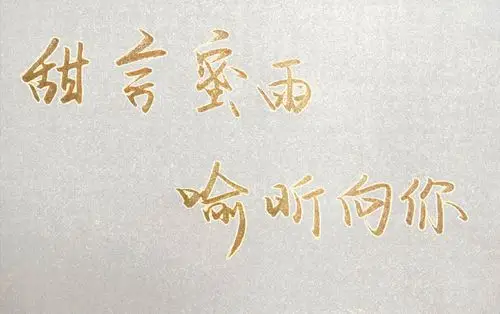 甜言蜜雨
喻昕向你